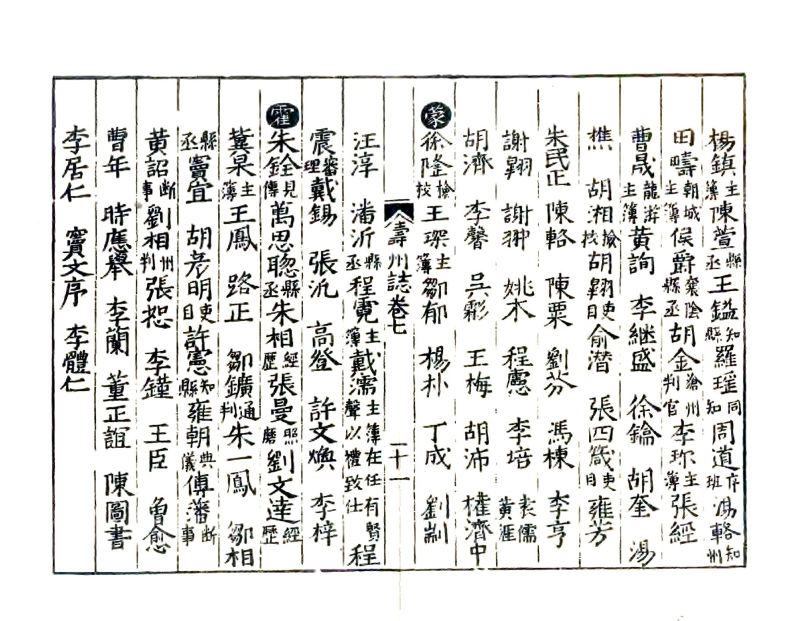 楊鎮主簿陳萱縣丞王鎰知縣羅瑤同知周道序班馮輅知州
田疇朝城主簿侯爵襄陰縣丞胡金滄州判官李珎主簿張經
曹晟龍游主簿黃詢 李繼盛 徐鑰 胡奎 湯
樵 胡相檢校胡翺吏目俞潛 張四箴吏目雍芳
朱民正 陳輅 陳栗 劉芬 馮棟 李亨
謝翺 謝翀 姚木 程憲 李培 裴儒 黃涯
胡濟 李馨 吳霦 王梅 胡沛 權濟中
蒙 徐隆檢校王琛主簿鄒郁 楊朴 丁成 劉
壽州誌卷七 二十一
汪淳 潘沂縣丞程霓主簿戴濡主簿在任有賢聲以禮致仕 程
震審理戴錫 張沠 高登 許文煥 李梓
霍 朱銓見傳萬思聰縣丞朱相經歷張曼照磨劉文達經歷
冀杲主簿王鳳 路正 鄒鑛通判朱一鳳 鄒相
縣丞竇宜 胡老明吏目許憲知縣雍朝典儀傅藩斷事
黃詔斷事劉相州判張恕 李鑵 王臣 魯愈
曹年 時應擧 李蘭 董正誼 陳圖書
李居仁 竇文序 李體仁